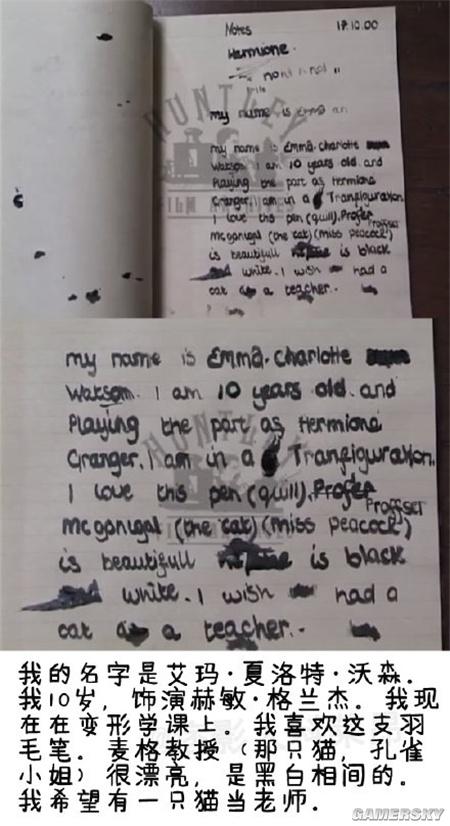 Notes
17.10.00
Hermione.
my name is Emma
my name is Emma. Charlotte
Watson. I am 10 years old. and
Playing the part as Hermione
Granger. I am in a Tranfiguration.
I love this pen (quill). Profer Proffser
Mc gonigal (the cat) (miss peacock)
is beautifull is black
white. I wish had a
cat as a teacher.
HUNTLEY
FILM ARCHIVES
my name is Emma. Charlotte
Watson. I am 10 years old. and
Playing the part as Hermione
Granger. I am in a Tranfiguration.
I love this pen (quill). Profer Proffser
Mc gonigal (the cat) (miss peacock)
is beautifull is black
white. I wish had a
cat as a teacher.
我的名字是艾玛·夏洛特·沃森.
我10岁, 饰演赫敏·格兰杰. 我现
在在变形学课上. 我喜欢这支羽
毛笔. 麦格教授 (那只猫, 孔雀
小姐) 很漂亮, 是黑白相间的.
我希望有一只猫当老师.
GAMERSKY